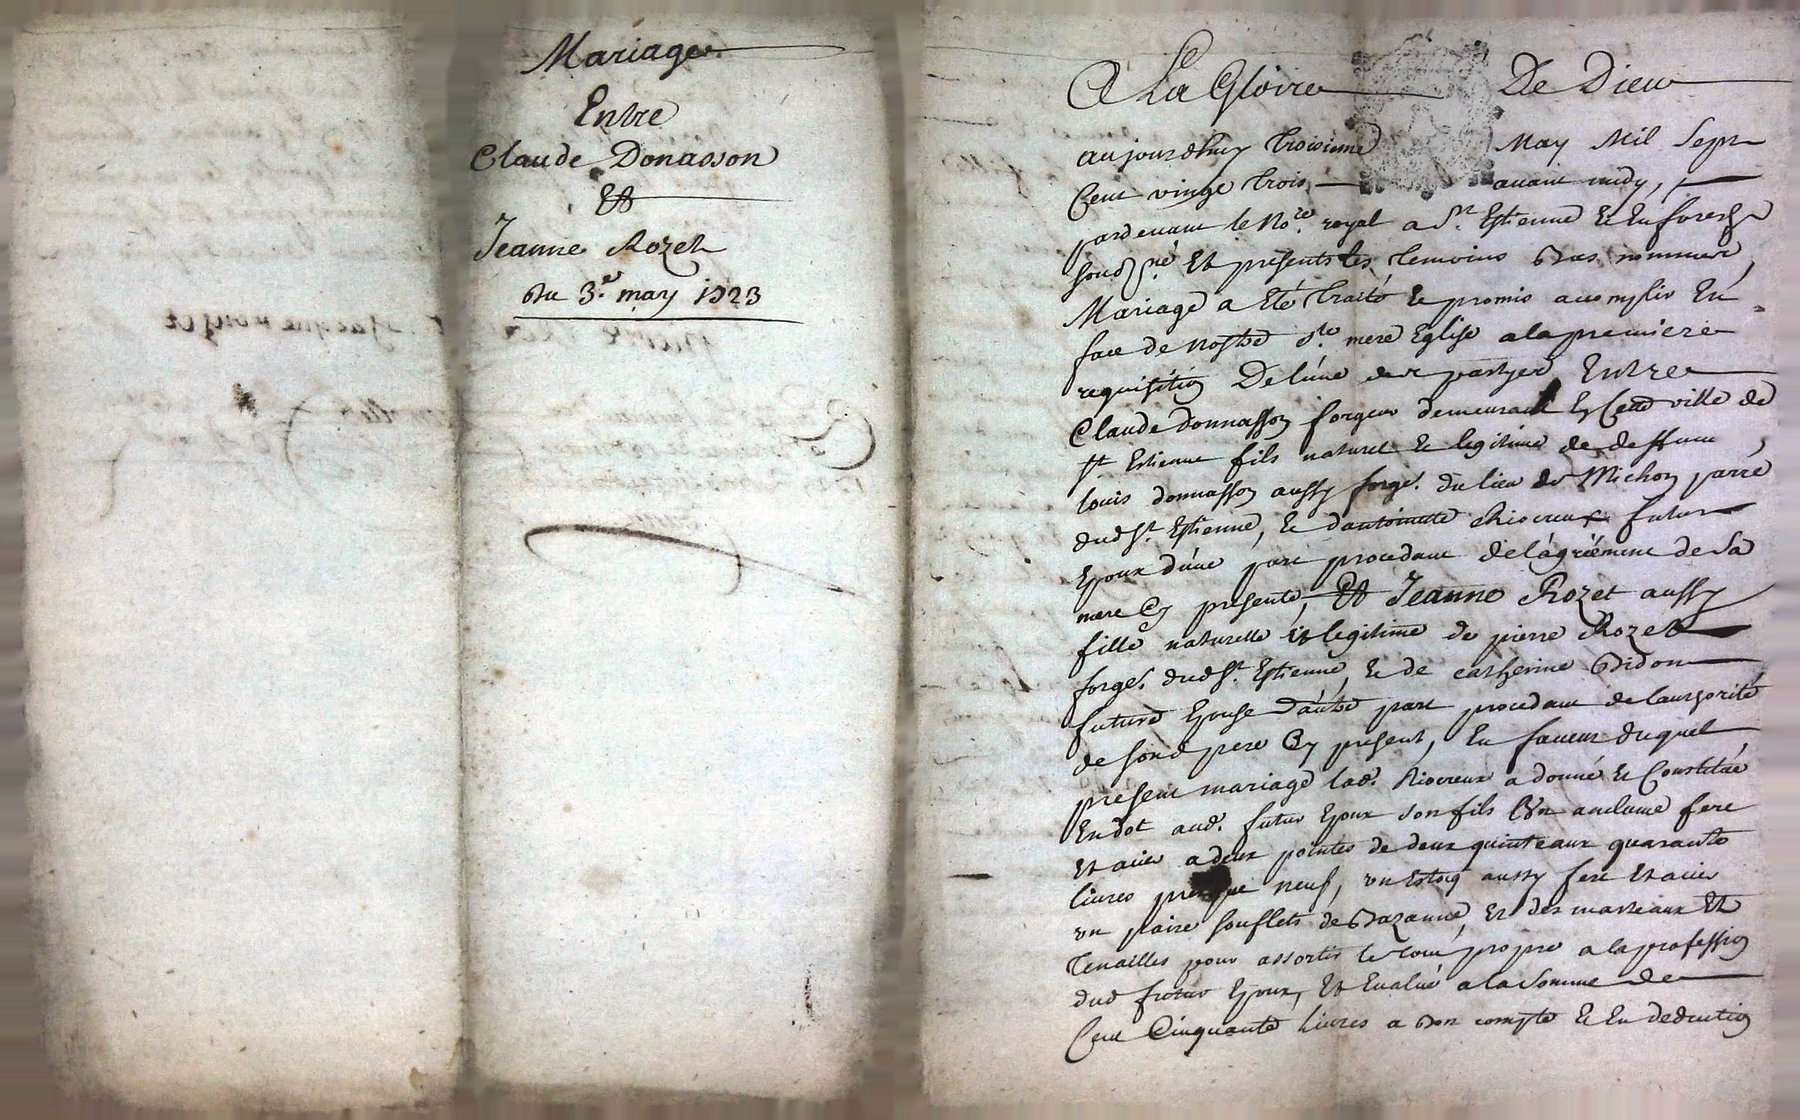 Mariage
Entre
Claude Donasson
Et
Jeanne Rozet
Du 3.e may 1723
A La Gloire De Dieu
aujourdhuy troisieme May Mil Sept
Cent vingt trois avant midy,
pardevant le No.re royal a St. Estienne Et En forest
soubz.né Et presents les temoins bas nommez,
Mariage a Eté traité Et promis acomplir En
face de nostre S.te mere Eglise a la premiere
requisition De lune des partyes Entre
Claude donnasson forgeur demeurant En Cette ville de
St. Estienne fils naturel Et legitime de deffunt
louis donnasson aussy forge.r du lieu de Michon parre
dud St. Estienne, Et dantoinette Riocreux futur
Epoux d'une part procedant de l'agréement de Sa
mere Cy presente, Et Jeanne Rozet aussy
fille naturelle Et legitime de pierre Rozet
forge.r dud St. Estienne, Et de catherine Bidon
future Epouse d'autre part procedant de lauthorité
de sond pere Cy present, En faveur duquel
present mariage lad. Riocreux a donné Et Constitué
En dot aud. futur Epoux son fils Un anclume fere
Et acier a deux pointes de deux quinteaux quarante
livres presque neuf, un Estoq aussy fere Et acier
un paire souflets de Bazanne, Et des marteaux Et
Tenailles pour assortir le tout propre a la profession
dud futur Epoux, Et Evalué a la somme de
Cent Cinquante livres a bon compte Et En deduction